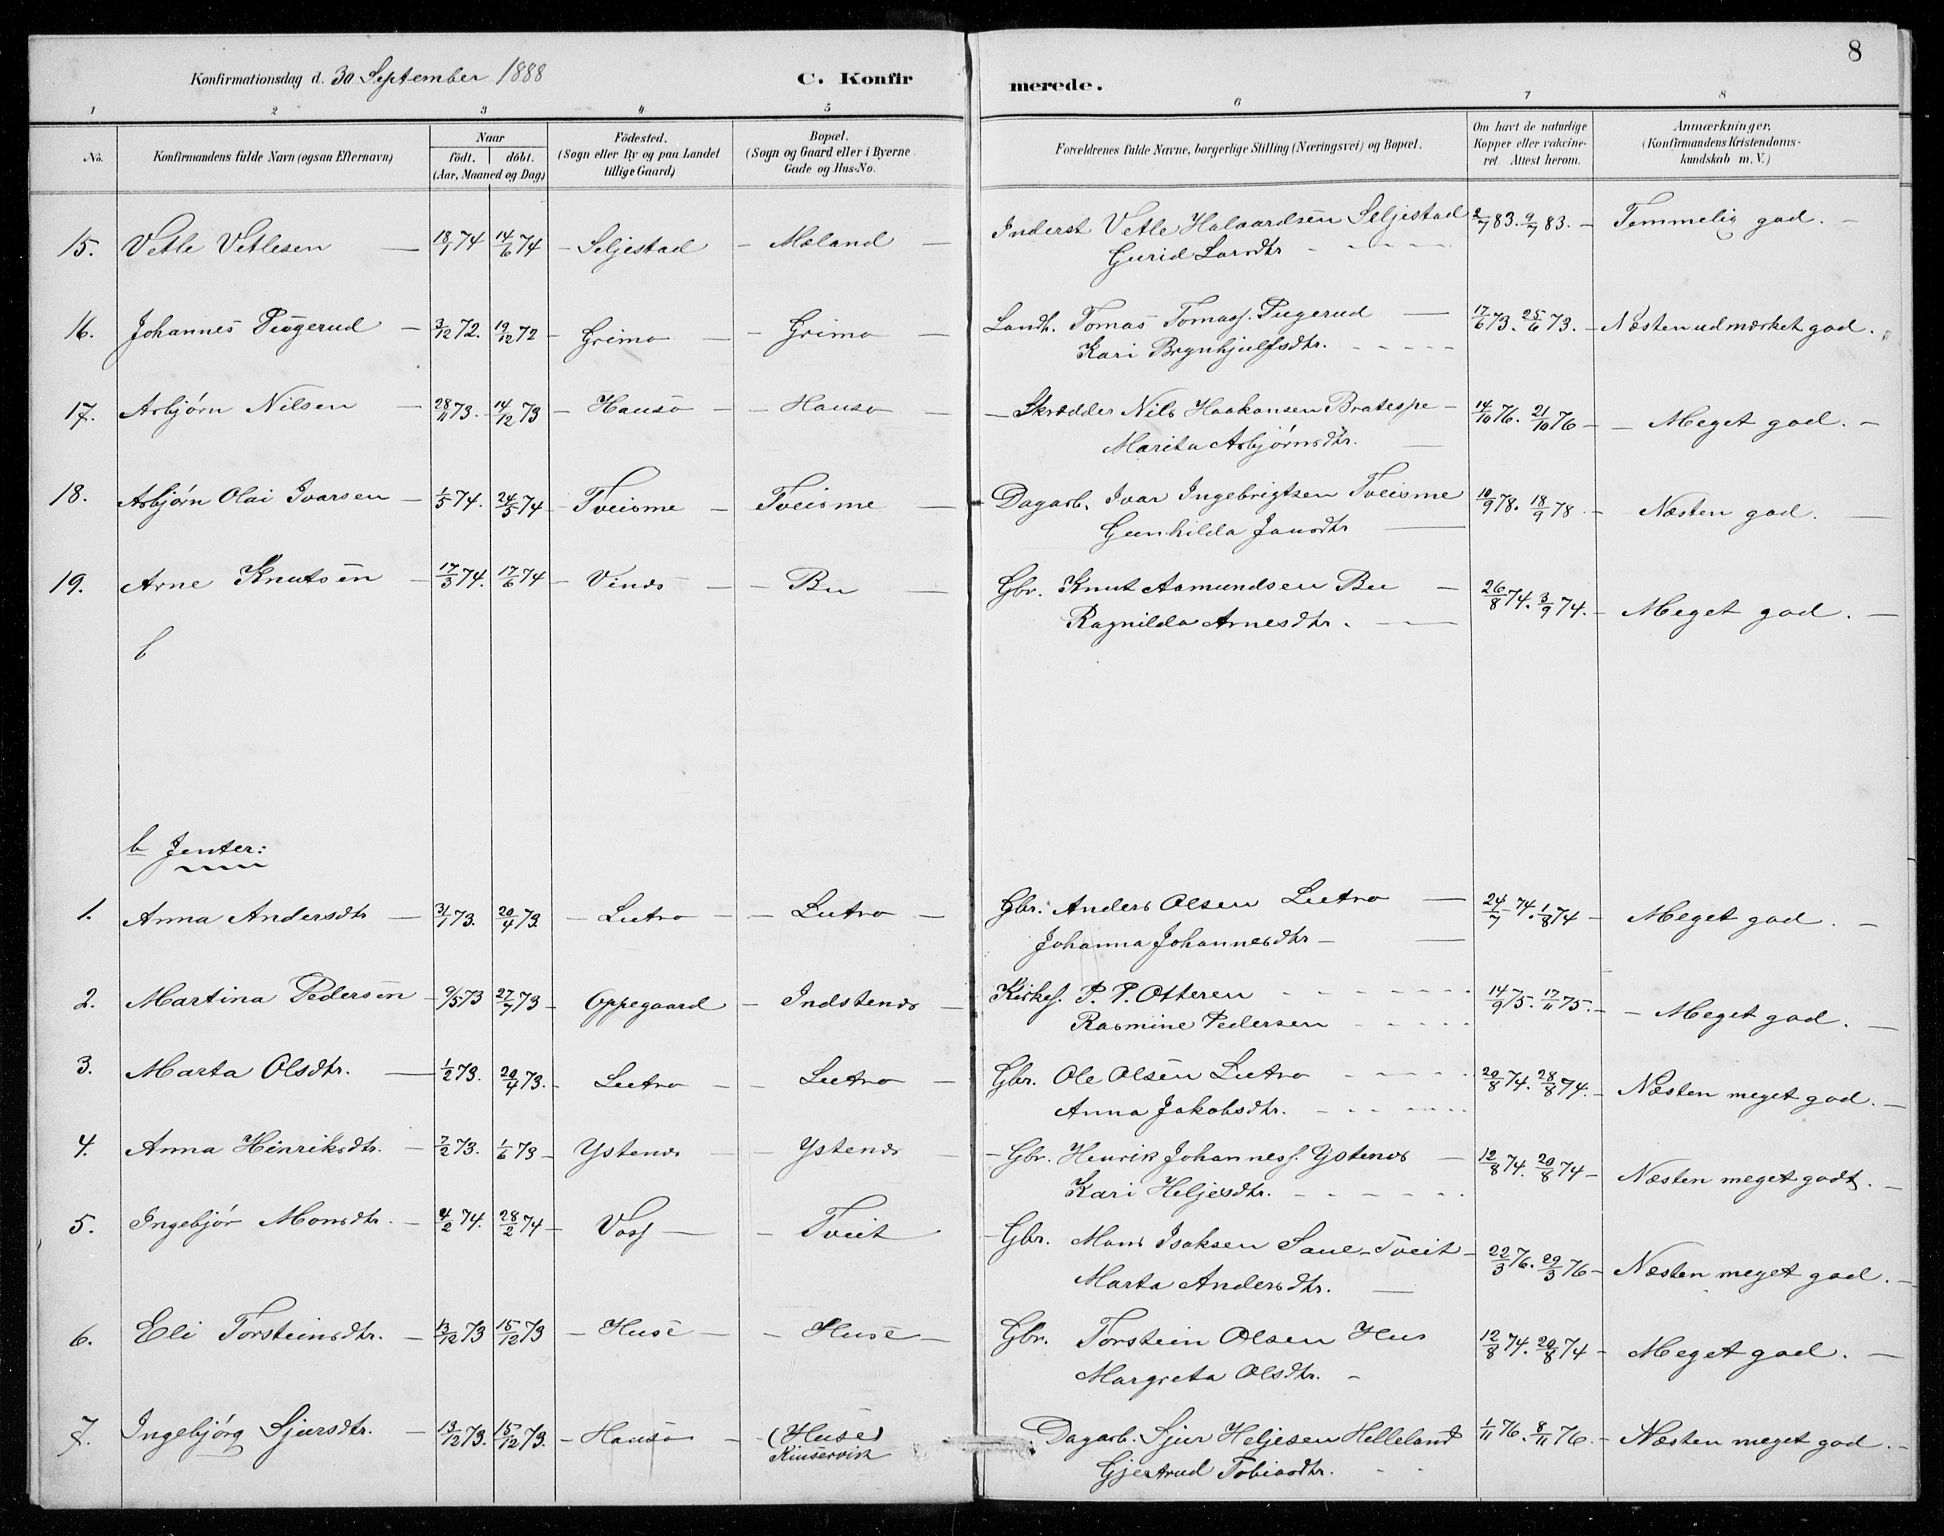 8
Konfirmationsdag d. 30 September 1888 C. Konfirmerede.
1 2 3 4 5 6 7 8
No. Konfirmandens fulde Navn (ogsaa Efternavn) Naar födt. döbt. (Aar, Maaned og Dag) Födested. (Sogn eller By og paa Landet tillige Gaard) Bopæl. (Sogn og Gaard eller i Byerne Gade og Hus-No. Forældrenes fulde Navne, borgerlige Stilling (Næringsvei) og Bopæl. Om havt de naturlige Kopper eller vakcineret. Attest herom. Anmærkninger. (Konfirmandens Kristendomskundskab m. V.)
15. Vetle Vetlesen — 18/1 74 14/6 74 – Seljestad – Mæland — Inderst Vetle Halvardsen Seljestad 2/7 83. 9/7 83. – Temmelig god. –
Gurid Larsdtr - - - -
16. Johannes Pugerud — 3/12 72. 19/12 72 – Grimo – – Grimo — Landh. Tomas Tomass. Pugerud — 17/6 73. 25/6 73. – Næsten udmærket god.
Kari Brynhjulfsdtr. - - - - -
17. Asbjørn Nilsen — 28/11 73. 14/12 73 – Hauso – – Hauso – – Skrædder Nils Haakonsen Bratespe – 14/10 76. 21/10 76 – – Meget god. –
Marita Asbjørnsdtr. —
18. Asbjørn Olai Ivarsen – 1/5 74. 24/5 74 – Tveisme – Tveisme — – Dagarb. Ivar Ingebrigtsen Tveisme 10/9 78. 18/9 78. – Næsten god. —
Gunhilda Jansdtr —
19. Arne Knutsen – 17/3 74. 17/6 74 – Vines – – Bu — Gbr. Knut Asmundsen Bu – 26/8 74. 3/9 74. – Meget god. —
Ragnilda Arnesdtr. – —
b
b Jenter:
1. Anna Andersdtr — 31/1 73. 20/4 73. – Lutro – – Lutro – Gbr. Anders Olsen Lutro — 24/7 74. 1/8 74 – Meget god. –
Johanna Johannesdtr – —
2. Martina Pedersen – 9/5 73 27/7 73 – Oppegaard – Indstenes – Kirkes. P. P. Otteren - - - - - 14/9 75. 17/11 75. – – Meget god. –
Rasmine Pedersen - - - - -
3. Marta Olsdtr. — 1/2 73. 20/4 73. – Lutro – – Lutro – Gbr. Ole Olsen Lutro - - - - 20/8 74. 28/8 74. – Næsten meget god. –
Anna Jakobsdtr. - - - - -
4. Anna Hinriksdtr. – 7/2 73. 1/6 73 – Ystenes – – Ystenes – – Gbr. Henrik Johanness. Ystenes – 12/8 74. 20/8 74 – Næsten meget godt. –
Kari Heljesdtr. - - - - -
5. Ingebjør Monsdtr. – 4/2 74. 28/2 74 – Voss – – Tveit — – Gbr. Mons Isaksen Saue-Tveit – 22/3 76. 29/3 76 – Næsten meget god. –
Marta Andersdtr. —
6. Eli Torsteinsdtr. – 13/12 73 15/12 73 – Huse – – Huse – Gbr. Torstein Olsen Hus 12/8 74. 20/8 74 – Meget god. –
Margreta Olsdtr. –
7. Ingebjørg Sjursdtr. – 13/12 73. 15/12 73. – Hauso – (Huse) Dagarb. Sjur Heljesen Helleland 1/11 76. 8/11 76. – Næsten meget god. –
Kinservik Gjertrud Tobiasdtr. - -